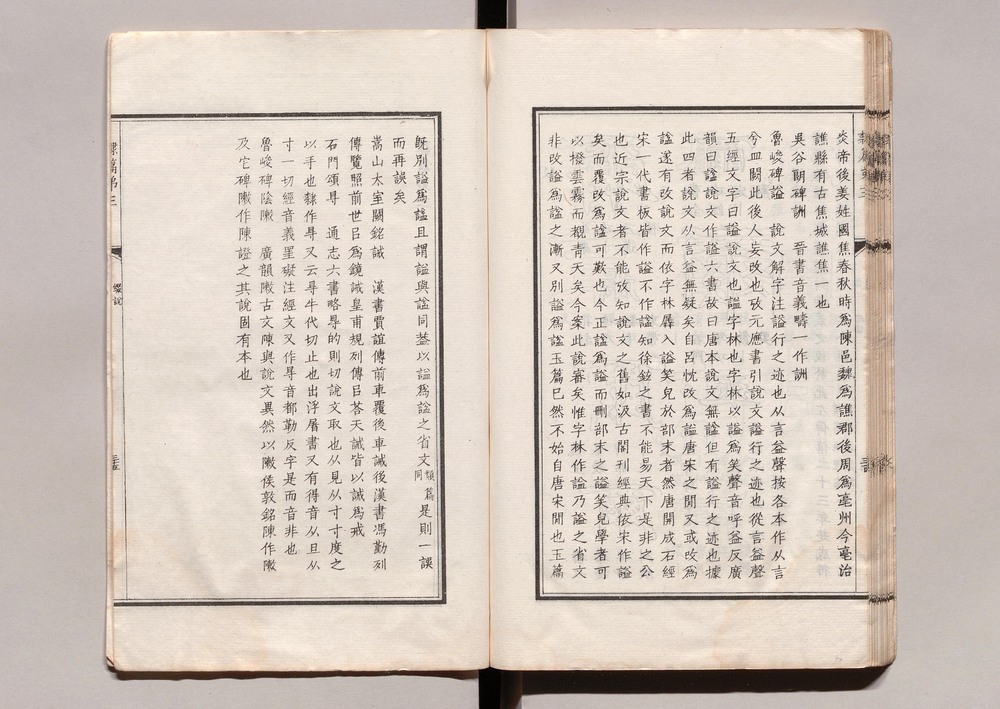 炎帝後姜姓國焦春秋時爲陳邑魏爲譙郡後周爲亳州今亳治
譙縣有古焦城譙焦一也
吳谷朗碑詶　晉書音義疇一作詶
魯峻碑謚　說文解字注謚行之迹也从言益聲按各本作从言
兮皿闕此後人妄改也攷元應書引說文謚行之迹也從言益聲
五經文字曰謚說文也諡字林也字林以謚爲笑聲音呼益反廣
韻曰諡說文作謚六書故曰唐本說文無諡但有謚行之迹也據
此四者說文从言益無疑矣自呂忱改爲諡唐宋之閒又或改爲
諡遂有改說文而依字林羼入謚笑皃於部末者然唐開成石經
宋一代書板皆作謚不作諡知徐鉉之書不能易天下是非之公
也近宗說文者不能攷知說文之舊如汲古閣刊經典依宋作謚
矣而覆改爲諡可歎也今正諡爲謚而刪部末之謚笑皃學者可
以撥雲霧而覩靑天矣今案此說審矣惟字林作諡乃謚之省文
非改謚爲諡之漸又別謚爲諡玉篇已然不始自唐宋閒也玉篇
旣別謚爲諡且謂謚與諡同葢以謚爲諡之省文類篇同是則一誤
而再誤矣
嵩山太室闕銘誡　漢書賈誼傳前車覆後車誡後漢書馮勤列
傳覽照前世㠯爲鏡誡皇甫規列傳㠯荅天誡皆以誡爲戒
石門頌㝵　通志六書略㝵的則切說文取也从見从寸寸度之
以手也隸作㝵又云㝵牛代切止也出浮屠書又有得音从旦从
寸一切經音義罣礙注經文又作㝵音都勒反字是而音非也
魯峻碑陰敶　廣韻敶古文陳與說文異然以敶侯敦銘陳作敶
及它碑敶作陳證之其說固有本也
隸篇弟三
蝯說